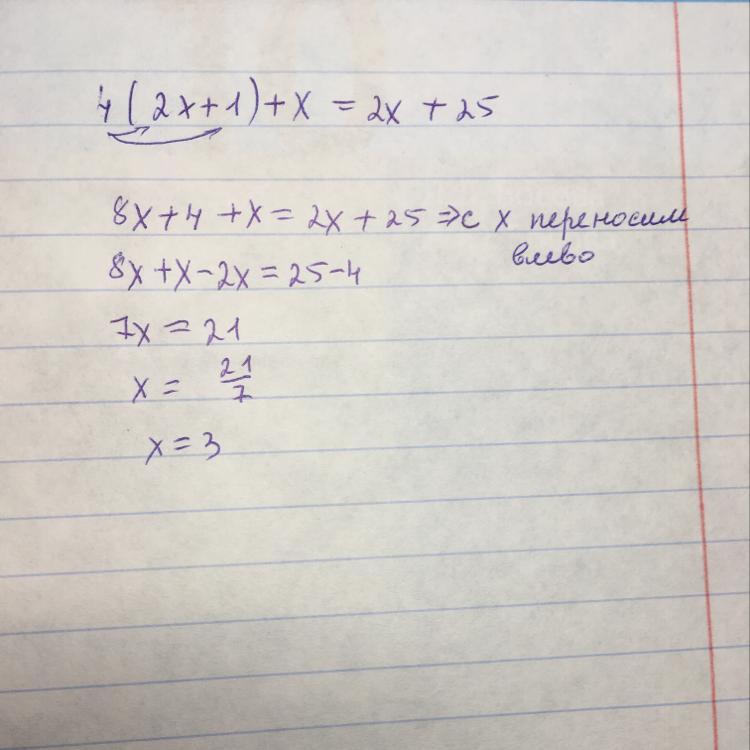 4(2x+1)+x = 2x + 25
8x+4+x = 2x+25 => с х переносим
влево
8x+x-2x=25-4
7x = 21
x = 21/7
x = 3